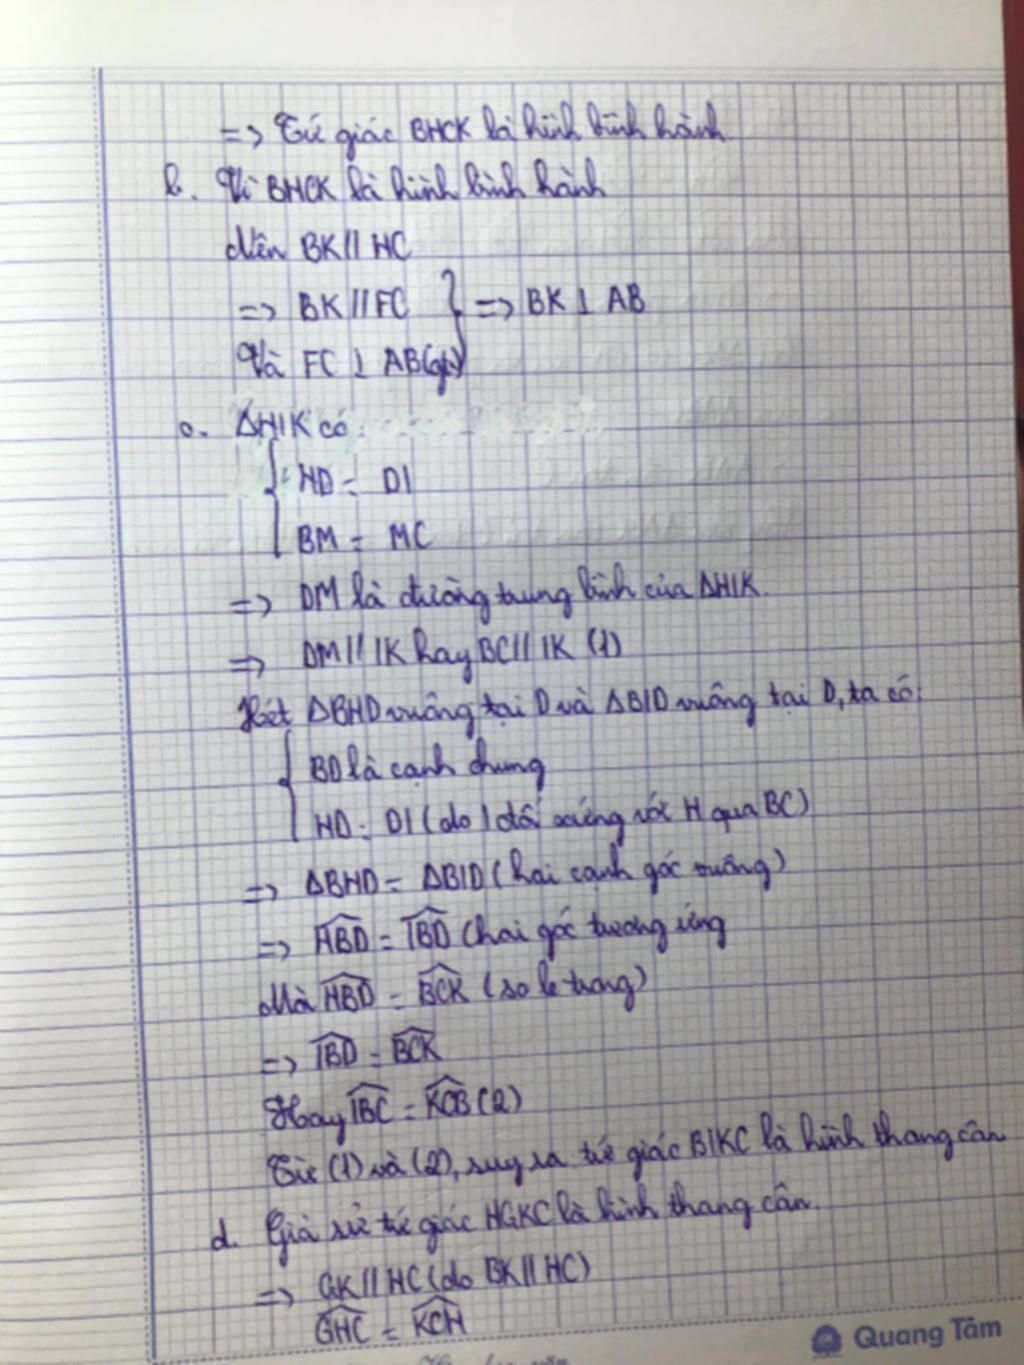 => Tứ giác BHCK là hình bình hành
b. Vì BHCK là hình bình hành
Nên BK // HC
=> BK // FC } => BK ⊥ AB
Và FC ⊥ AB (gt)
c. ΔHIK có:
{ HD = DI
BM = MC
=> DM là đường trung bình của ΔHIK.
=> DM // IK hay BC // IK (1)
Xét ΔBHD vuông tại D và ΔBID vuông tại D, ta có:
{ BD là cạnh chung
HD = DI (do I đối xứng với H qua BC)
=> ΔBHD = ΔBID (hai cạnh góc vuông)
=> \widehat{HBD} = \widehat{IBD} (hai góc tương ứng
Mà \widehat{HBD} = \widehat{BCK} (so le trong)
=> \widehat{IBD} = \widehat{BCK}
Hay \widehat{IBC} = \widehat{KCB} (2)
Từ (1) và (2), suy ra tứ giác BIKC là hình thang cân
d. Giả sử tứ giác HGKC là hình thang cân.
=> GK // HC (do BK // HC)
\widehat{GHC} = \widehat{KCH}
Quang Tâm